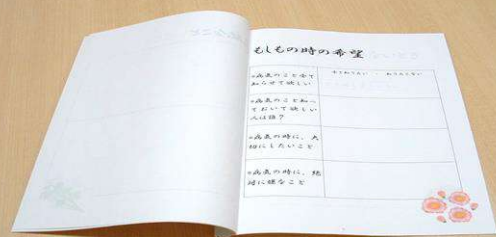 もしもの時の希望
○病気のこと全て
知らせて欲しい
○病気のこと知っ
ておいて欲しい
人は誰?
○病気の時に、大
切にしたいこと
○病気の時に、絶
対に嫌なこと